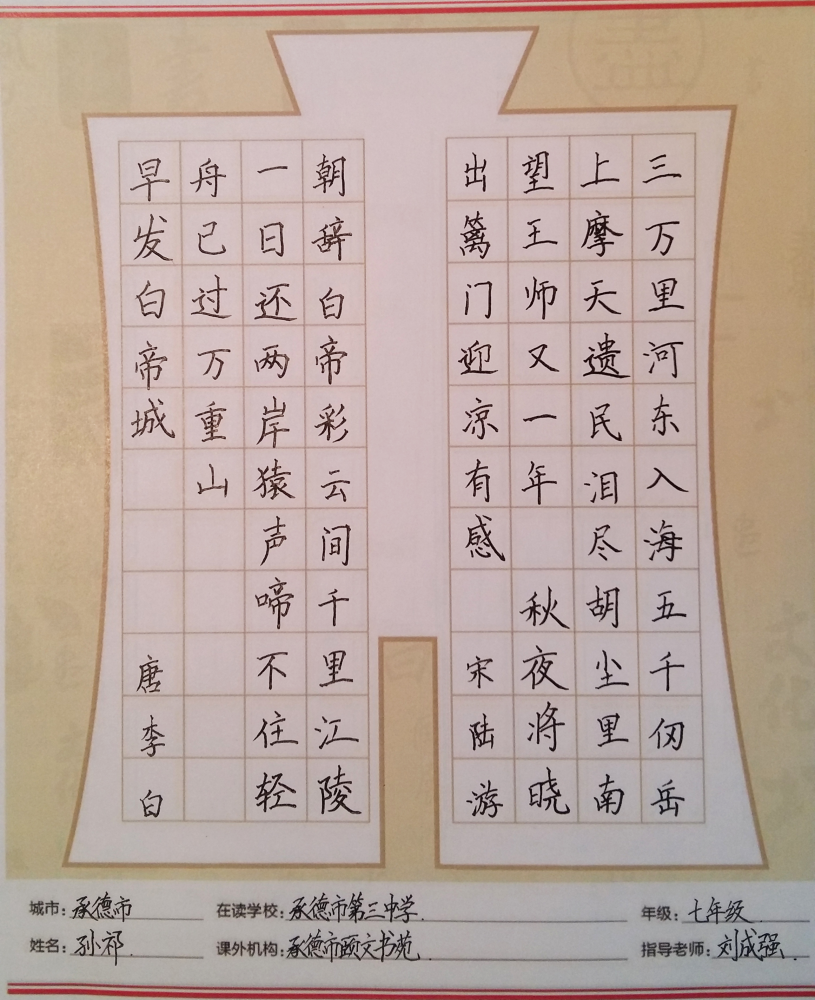 三万里河东入海五千仞岳
上摩天遗民泪尽胡尘里南
望王师又一年 秋夜将晓
出篱门迎凉有感 宋陆游
朝辞白帝彩云间千里江陵
一日还两岸猿声啼不住轻
舟已过万重山
早发白帝城 唐李白
城市:承德市 在读学校:承德市第三中学. 年级:七年级.
姓名:孙祁. 课外机构:承德市颐文书苑. 指导老师:刘成强.